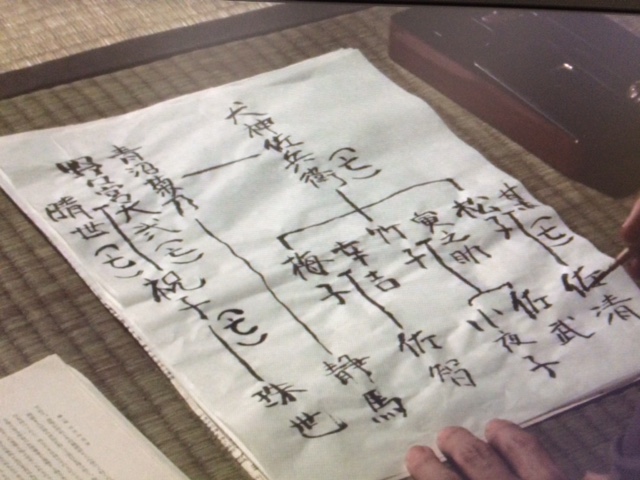 犬神佐兵衛(亡)
某(亡)
松子
寅之助
竹子
幸吉
梅子
佐清
佐武
小夜子
佐智
青沼菊乃
静馬
野々宮大弐(亡)
晴世(亡)
祝子(亡)
珠世